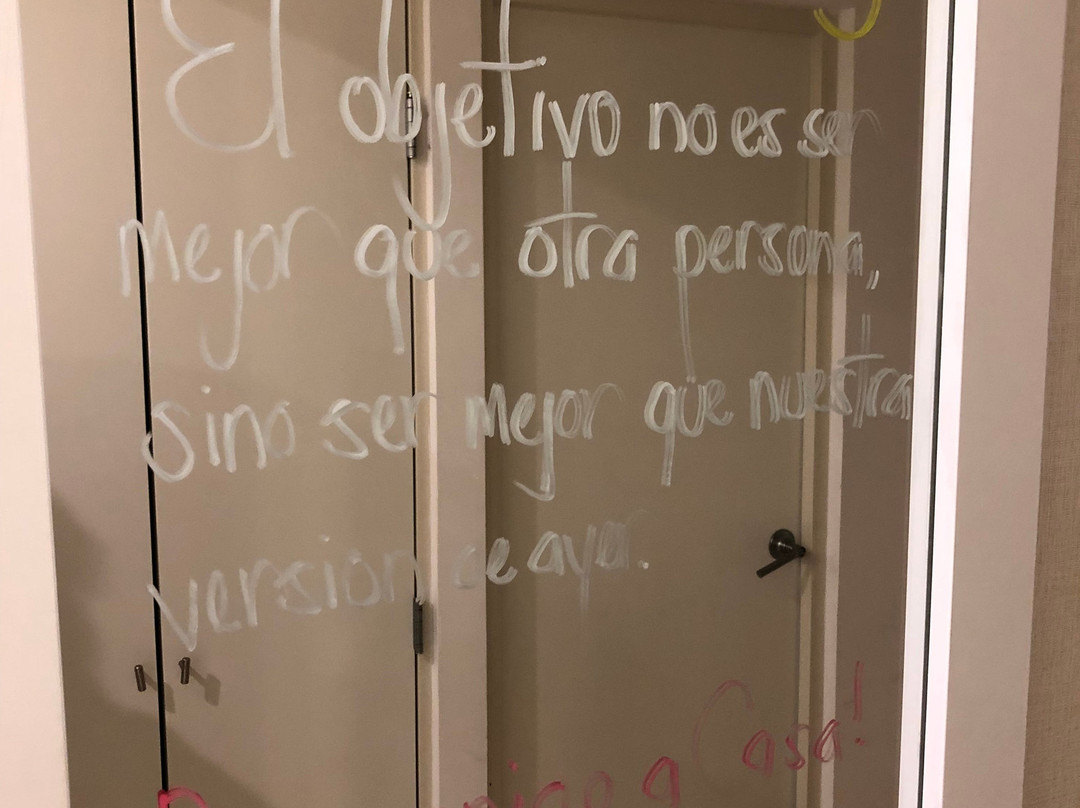 El objetivo no es ser
Mejor que otra persona,
sino ser mejor que nuestra
versión de ayer.
a Casa!